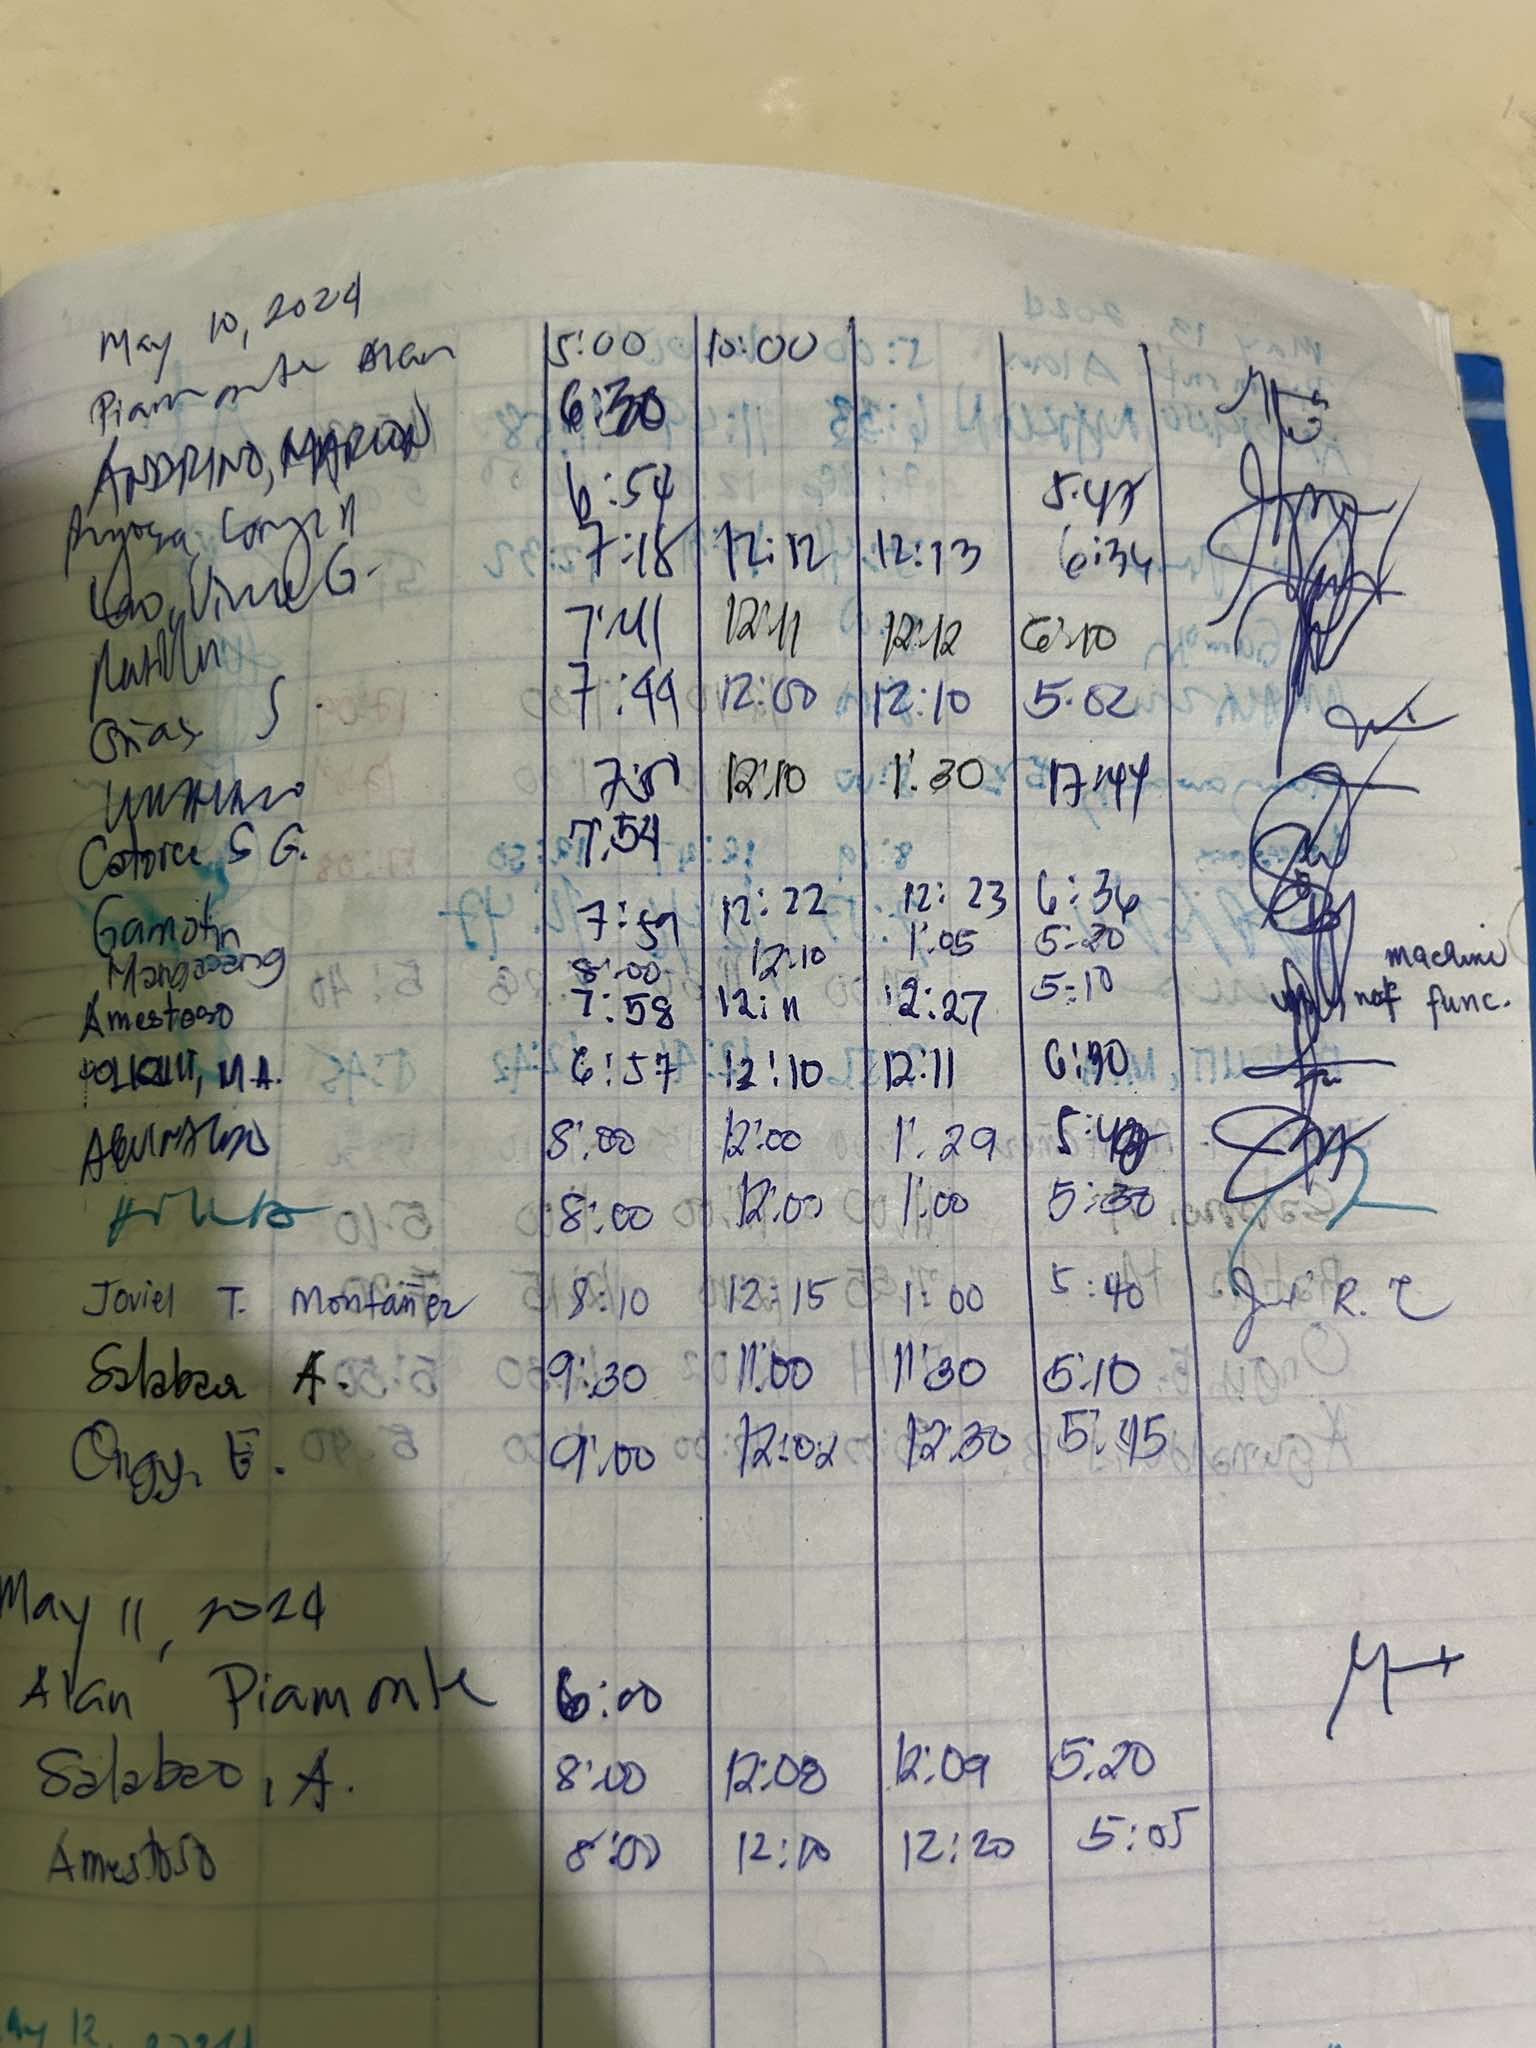 May 10, 2024
Piamonte Alan 5:00 10:00
ANDRINO, MARION 6:30
6:54 5:47
Lao, Vince G. 7:18 12:12 12:13 6:34
7:41 12:11 12:12 6:10
S. 7:44 12:00 12:10 5:02
12:10 1:30 17:44
Catorce S G. 7:54
Gamotin 7:59 12:22 12:23 6:36
Mangapang 8:00 12:10 1:05 5:20
Amestoso 7:58 12:11 12:27 5:10 machine not func.
POLIQUIT, M.A. 6:57 12:10 12:11 6:30
8:00 12:00 1:29
8:00 12:00 1:00 5:30
Joviel T. Montañez 8:10 12:15 1:00 5:40
Salabao A. 9:30 11:00 11:30 5:10
Ongy, E. 9:00 12:02 12:30 5:45
May 11, 2024
Alan Piamonte 6:00
Salabao, A. 8:00 12:08 12:09 5:20
Amestoso 8:00 12:10 12:20 5:05